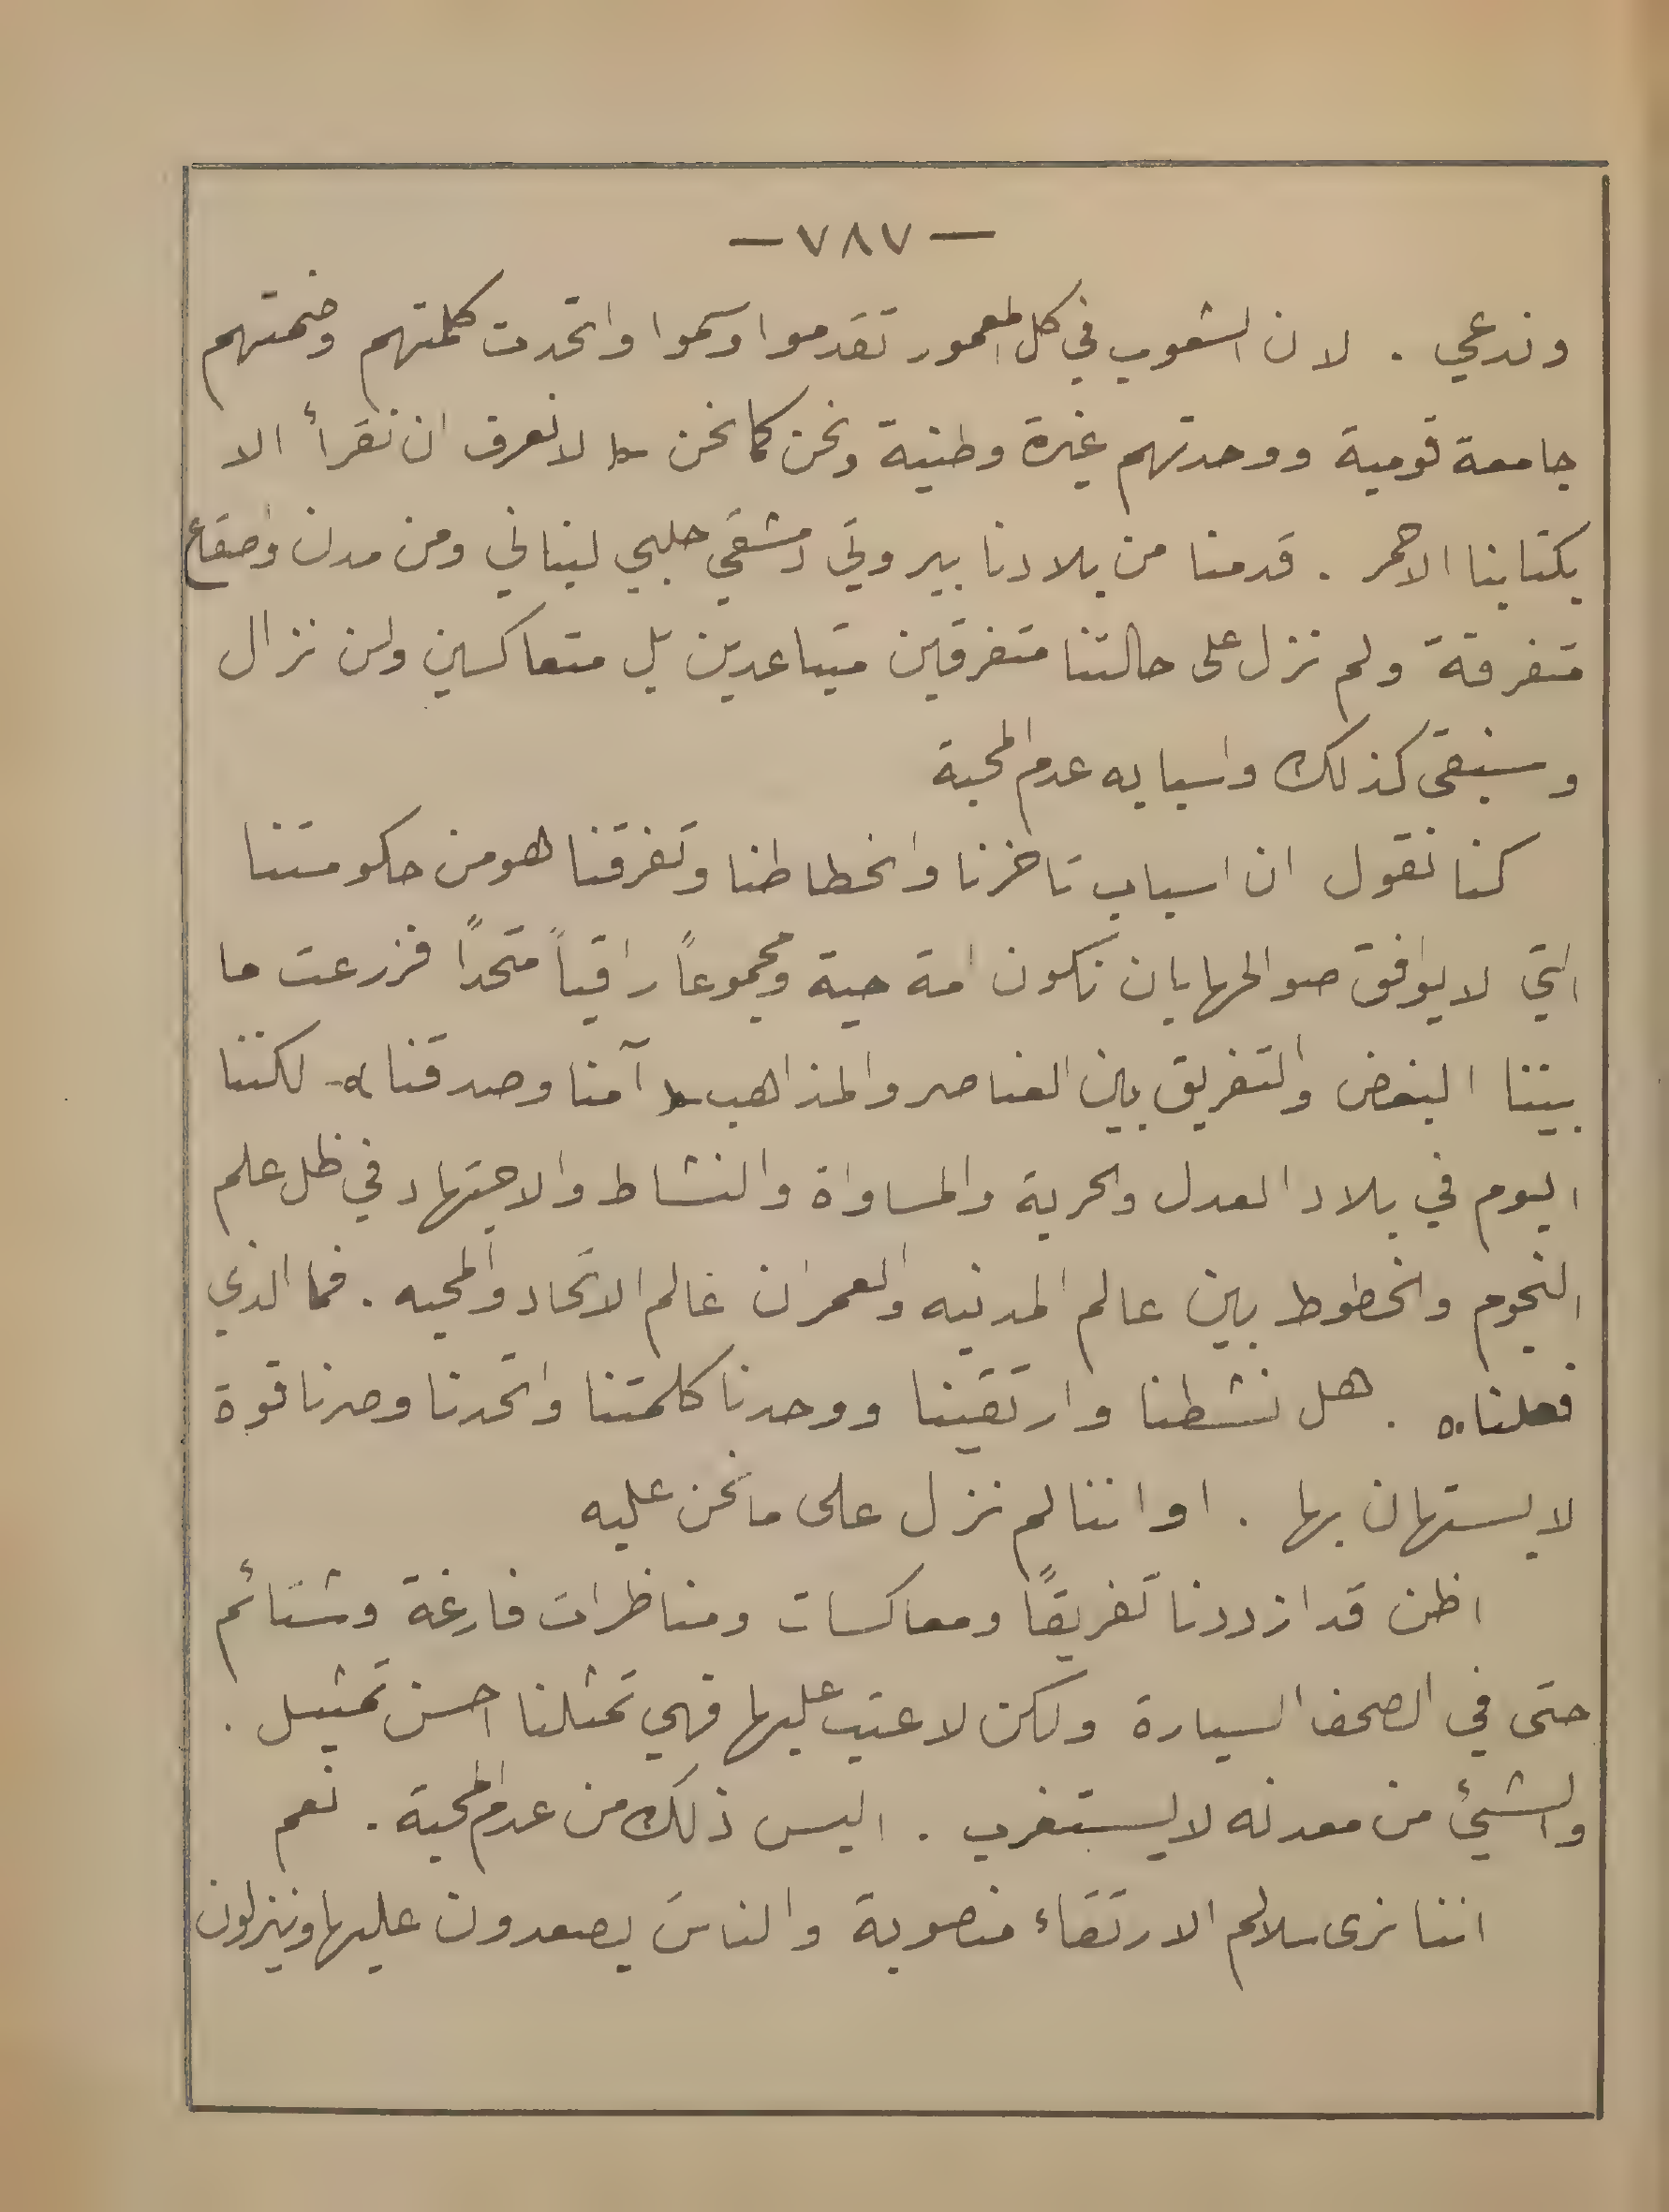 — ٧٨٧ —
وندعي . لان الشعوب في كل المعمور تقدموا وسموا واتحدت كلمتهم وضمتهم
جامعة قومية ووحدتهم غيرة وطنية ونحن كما نحن لا نعرف ان نقرأ الا
بكتابنا الاحمر . قدمنا من بلادنا بيروتي دمشقي حلبي لبناني ومن مدن واصقاع
متفرقة ولم نزل على حالتنا متفرقين متباعدين بل متعاكسين ولن نزال
وسنبقى كذلك واسبابه عدم المحبة
كنا نقول ان اسباب تاخرنا وانحطاطنا وتفرقنا هو من حكومتنا
التي لا يوافق صوالحها بان نكون امة حية ومجموعاً راقياً متحداً فزرعت ما
بيننا البغض والتفريق بين العناصر والمذاهب آمنا وصدقنا - لكننا
اليوم في بلاد العدل والحرية والمساواة والنشاط والاجتهاد في ظل علم
النجوم والخطوط بين عالم المدنيه والعمران عالم الاتحاد والمحبه . فما الذي
فعلناه . هل نشطنا وارتقينا ووحدنا كلمتنا واتحدنا وصرنا قوة
لا يستهان بها . او اننا لم نزل على ما نحن عليه
اظن قد ازددنا تفريقاً ومعاكسات ومناظرات فارغة وشتائم
حتى في الصحف السيارة ولكن لا عتب عليها فهي تمثلنا احسن تمثيل .
والشيئ من معدنه لا يستغرب . اليس ذلك من عدم المحبة . نعم
اننا نرى سلالم الارتقاء منصوبة والناس يصعدون عليها وينزلون